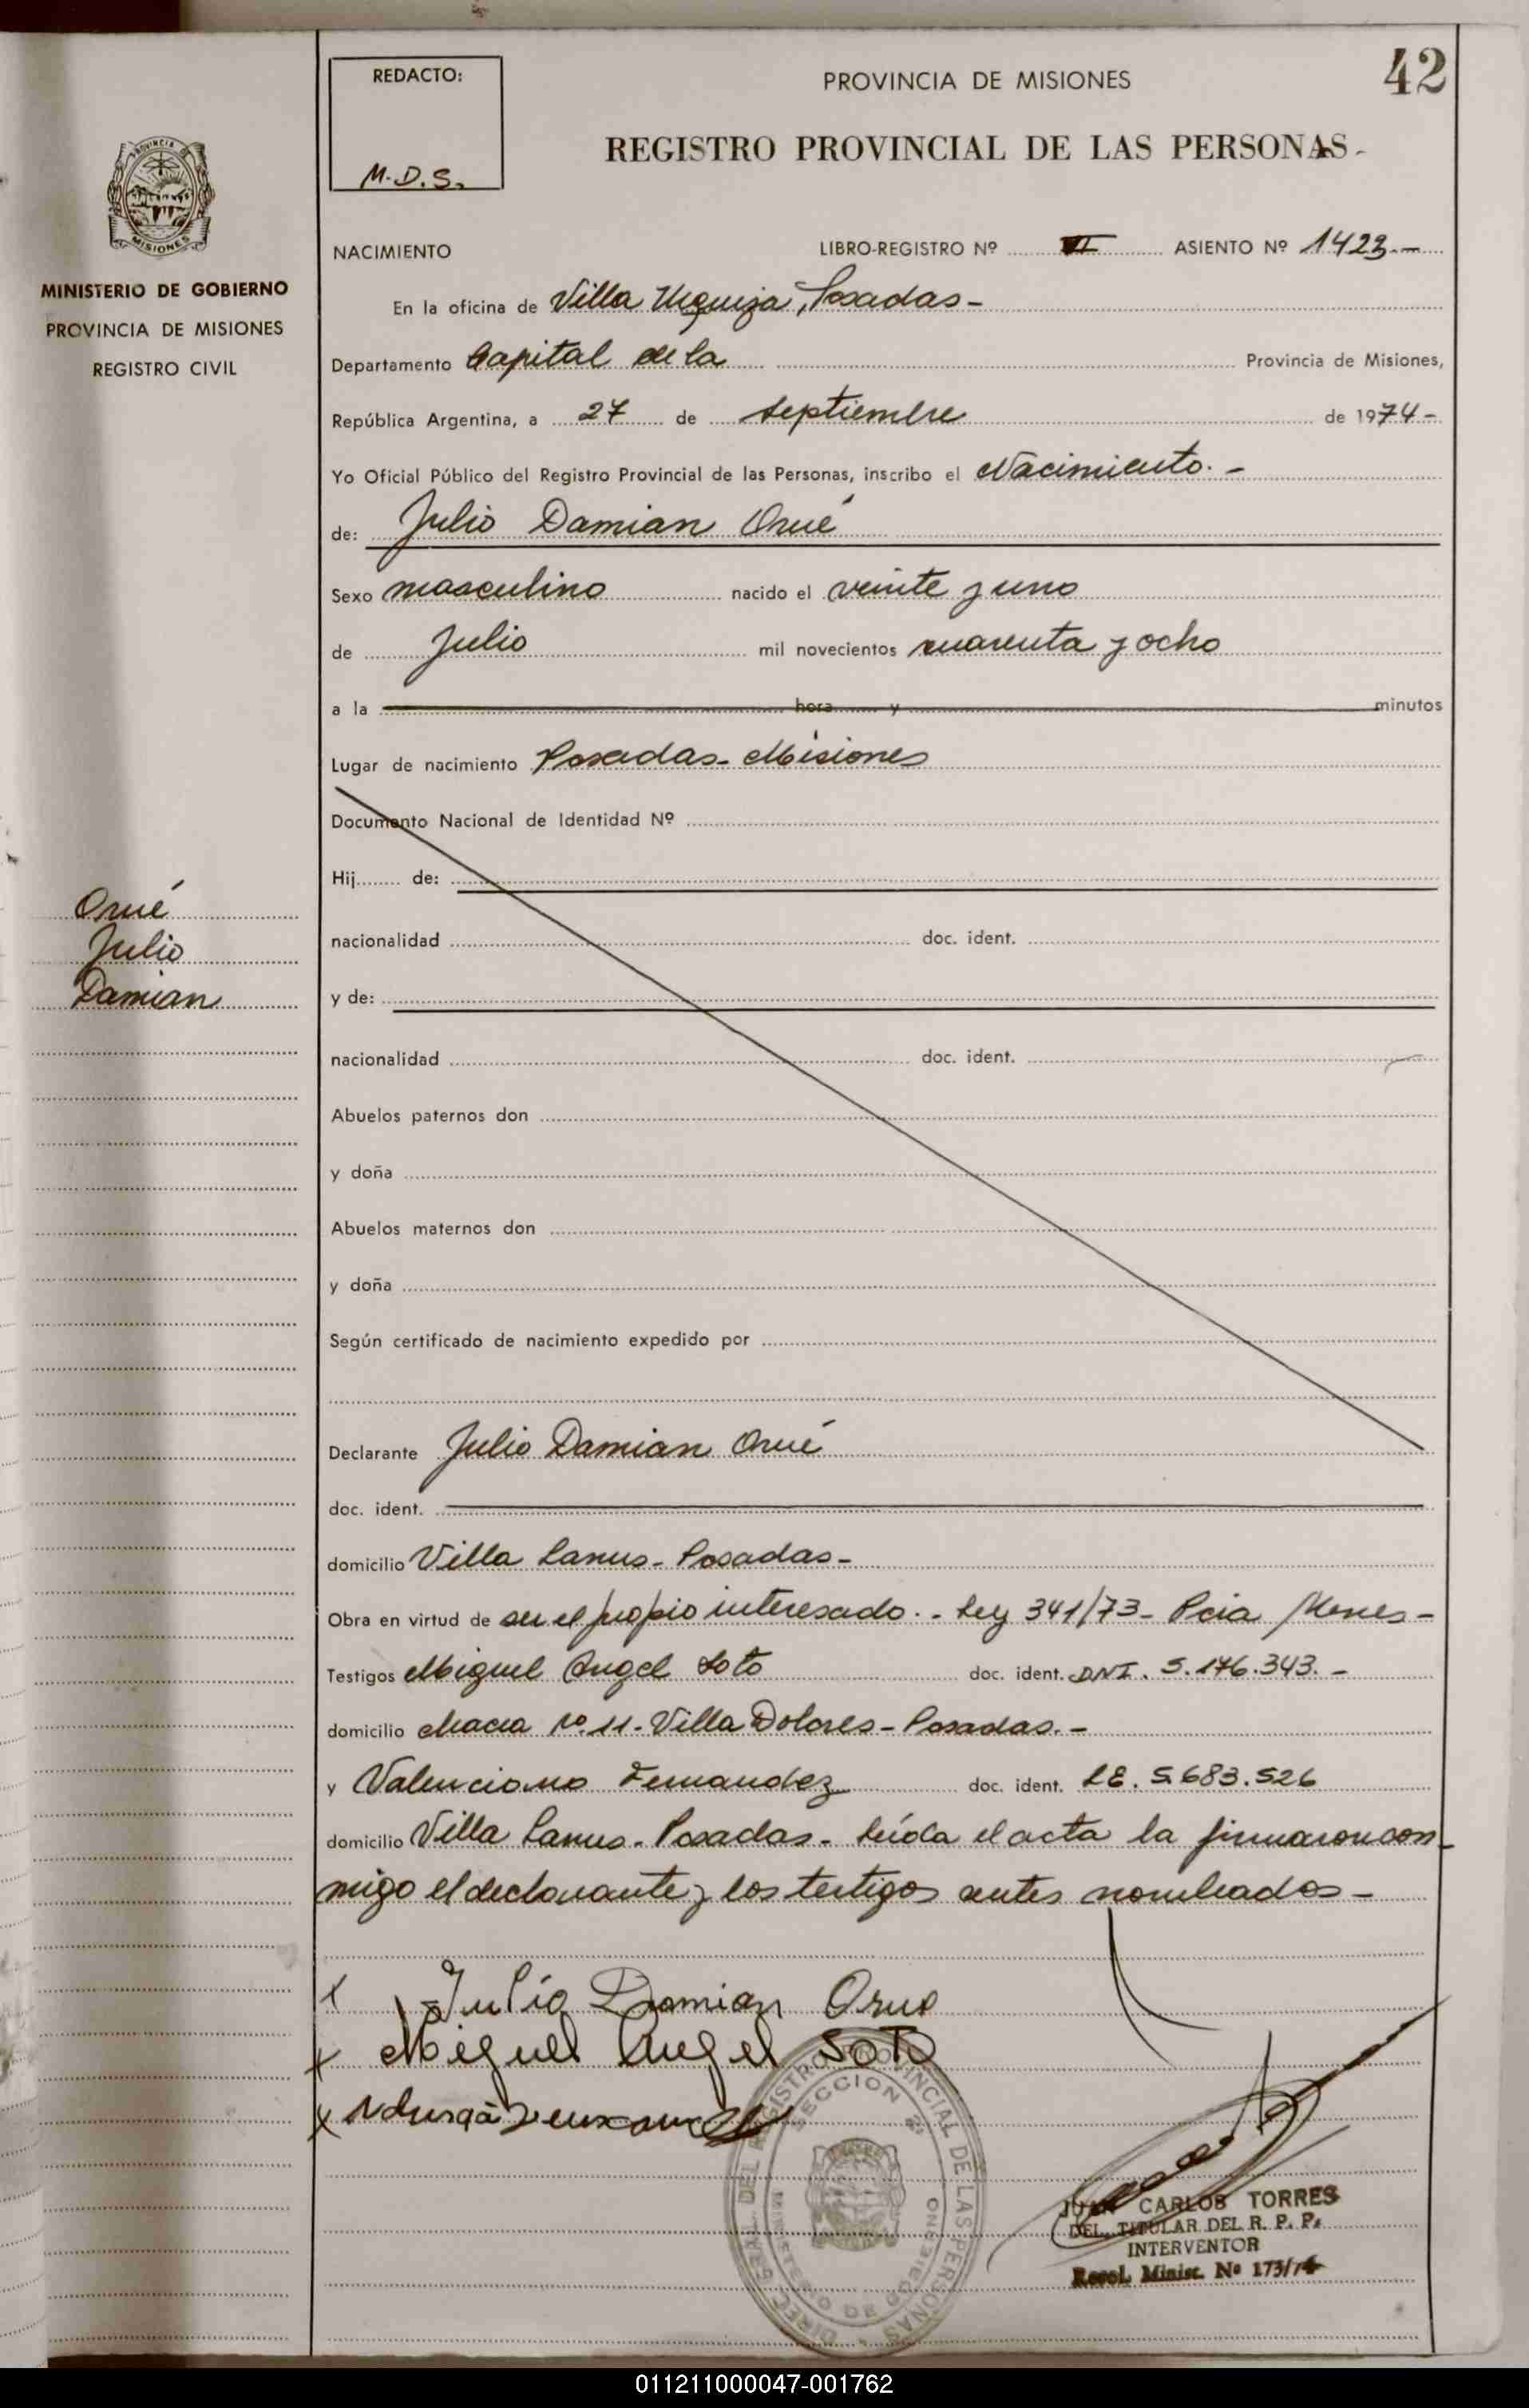 42
REDACTO:
M.D.S.
PROVINCIA DE MISIONES
REGISTRO PROVINCIAL DE LAS PERSONAS-
PROVINCIA DE
MISIONES
MINISTERIO DE GOBIERNO
PROVINCIA DE MISIONES
REGISTRO CIVIL
NACIMIENTO LIBRO-REGISTRO Nº VI ASIENTO Nº 1423.-
En la oficina de Villa Urquiza, Posadas-
Departamento Capital de la Provincia de Misiones,
República Argentina, a 27 de septiembre de 1974-
Yo Oficial Público del Registro Provincial de las Personas, inscribo el Nacimiento.-
de: Julio Damian Orué
Sexo masculino nacido el veinte y uno
de Julio mil novecientos cuarenta y ocho
a la hora y minutos
Lugar de nacimiento Posadas- Misiones
Documento Nacional de Identidad Nº
Hij de:
Orué
Julio
Damian
nacionalidad doc. ident.
y de:
nacionalidad doc. ident.
Abuelos paternos don
y doña
Abuelos maternos don
y doña
Según certificado de nacimiento expedido por
Declarante Julio Damian Orué
doc. ident.
domicilio Villa Lanus- Posadas-
Obra en virtud de ser el propio interesado.- Ley 341/73- Pcia Mnes-
Testigos Miguel Angel Soto doc. ident. DNI. 5.176.343.-
domicilio chacra Nº 11- Villa Dolores- Posadas.-
y Valenciano Fernandez doc. ident. LE. 5.683.526
domicilio Villa Lanus- Posadas- Leída el acta la firmaron con
migo el declarante y los testigos antes nombrados-
x Julio Damian Orue
x Miguel Angel SOTO
x
DIREC. GRAL. DEL REGISTRO PROVINCIAL DE LAS PERSONAS
SECCION 2ª
MINISTERIO DE GOBIERNO
JUAN CARLOS TORRES
DEL. TITULAR DEL R. P. P.
INTERVENTOR
Resol. Minist. Nº 173/74
011211000047-001762